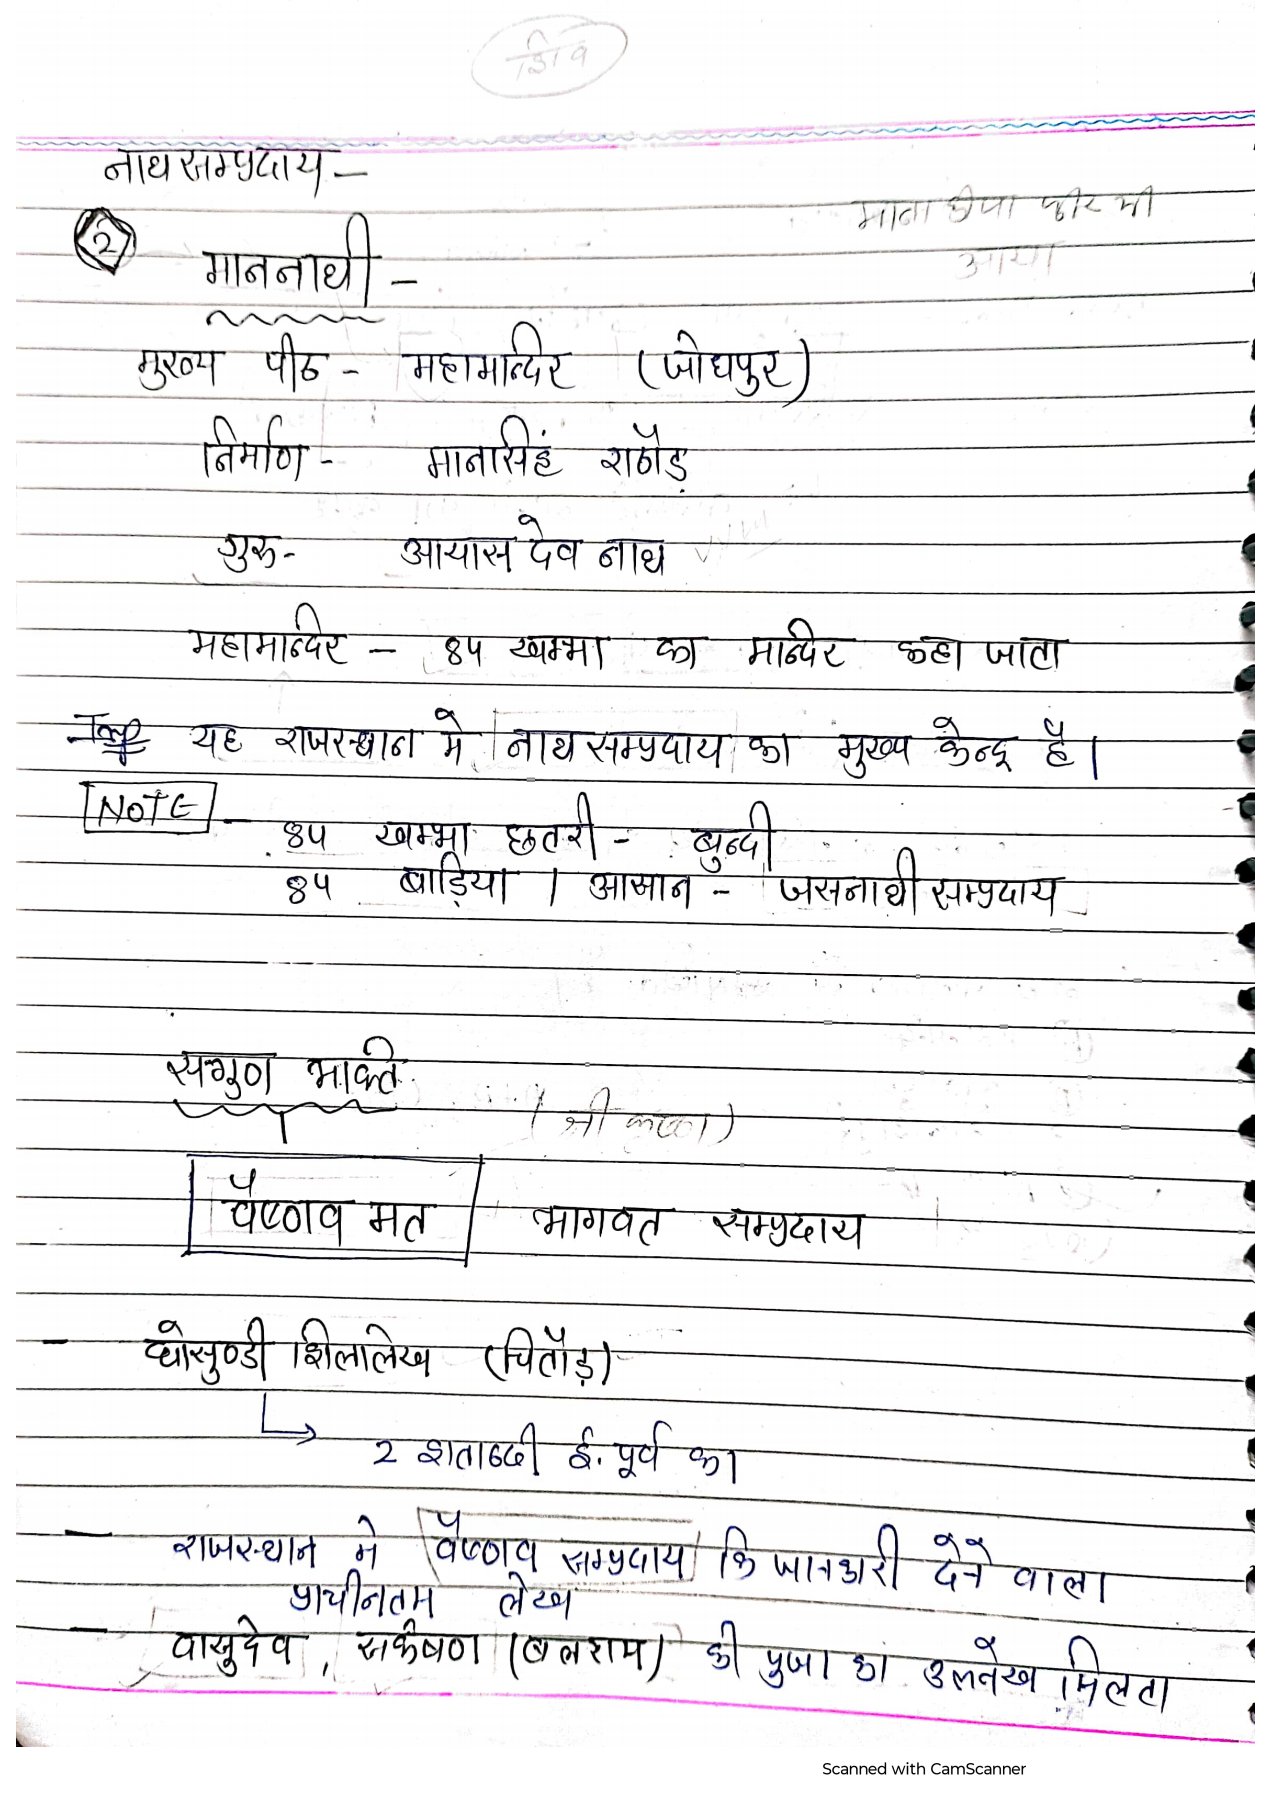 शिव
नाथ सम्प्रदाय –
2
माननाथी –
मुख्य पीठ - महामन्दिर (जोधपुर)
निर्माण - मानसिंह राठौड़
गुरु - आयास देव नाथ
महामन्दिर – 84 खम्भा का मन्दिर कहा जाता
Imp यह राजस्थान मे नाथ सम्प्रदाय का मुख्य केन्द्र है।
NOTE – 84 खम्भा छतरी - बुन्दी
84 बाड़िया / आसान - जसनाथी सम्प्रदाय
सगुण भक्ति
(श्री कृष्ण)
वैष्णव मत भागवत सम्प्रदाय
– घोसुण्डी शिलालेख (चितौड़)
2 शताब्दी ई. पूर्व का
– राजस्थान मे वैष्णव सम्प्रदाय कि जानकारी देने वाला
प्राचीनतम लेख
– वासुदेव, सर्कषण (बलराम) की पुजा का उल्लेख मिलता
Scanned with CamScanner